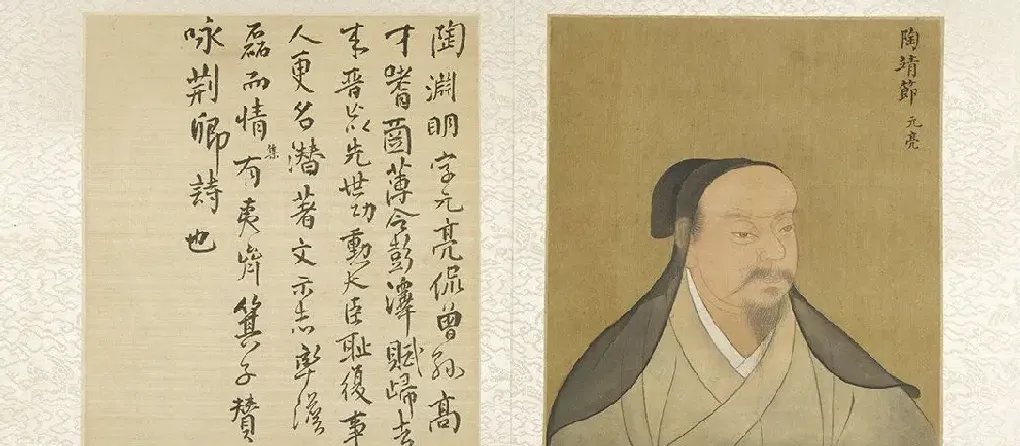 陶靖節 元亮
陶淵明字元亮侃曾孫高
才嗜薄令彭澤賦歸去
来晉以先世功勳大臣耻復事
人更名潜著文示志
磊而情集有夷齊箕子贊
咏荆卿詩也